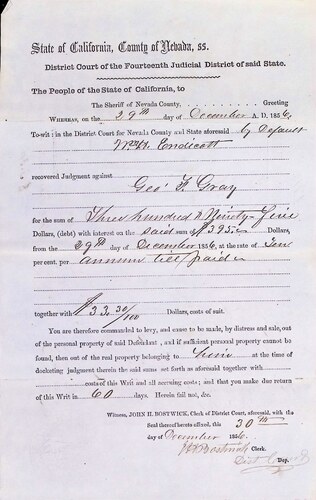 State of California, County of Nevada, ss.
District Court of the Fourteenth Judicial District of said State.
The People of the State of California, to
The Sheriff of Nevada County, Greeting
WHEREAS, on the 29th day of December A. D. 1856,
To-wit: in the District Court for Nevada County and State aforesaid by Default
Wm H. Endicott
recovered Judgment against
Geo. F. Gray
for the sum of Three hundred & Ninety-five
Dollars, (debt) with interest on the said sum of $395.00 Dollars,
from the 29th day of December 1856, at the rate of Ten
per cent. per annum till paid
together with $33 30/100 Dollars, costs of suit.
You are therefore commanded to levy, and cause to be made, by distress and sale, out
of the personal property of said Defendant, and if sufficient personal property cannot be
found, then out of the real property belonging to him at the time of
docketing judgment therein the said sum set forth as aforesaid together with
costs of this Writ and all accruing costs; and that you make due return
of this Writ in 60 days. Herein fail not, &c.
Witness, JOHN H. BOSTWICK, Clerk of District Court, aforesaid, with the
Seal thereof hereto affixed, this 30th
day of December 1856.
J H Bostwick Clerk.
Dep.